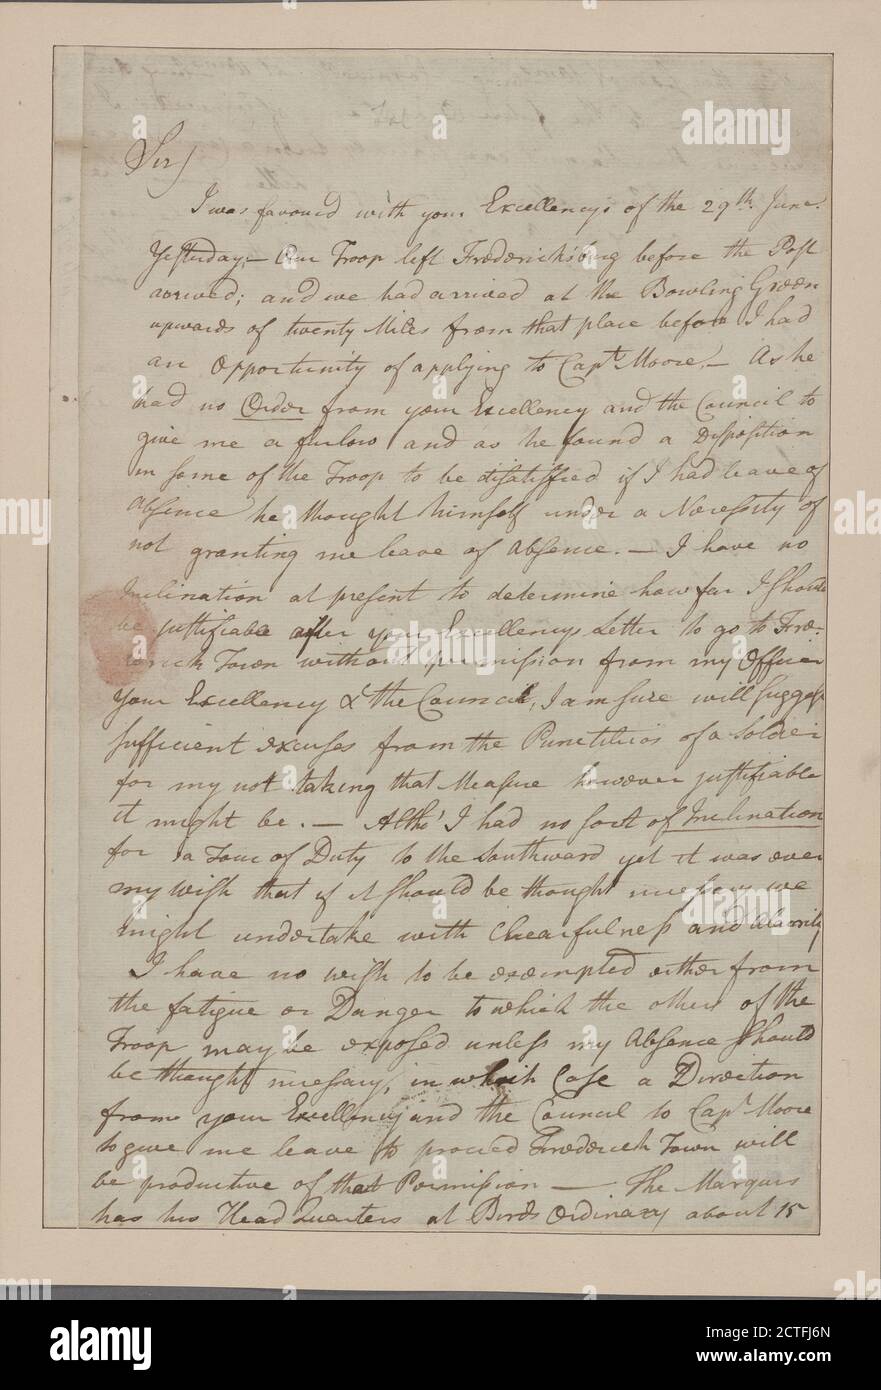 Sir
I was favoured with your Excellencys of the 29th. June.
Yesterday.— Our Troop left Fredericksburg before the Post
arrived; and we had arrived at the Bowling Green
upwards of twenty Miles from that place before I had
an Opportunity of applying to Capt. Moore.— As he
had no Order from your Excellency and the Council to
give me a furlow and as he found a Disposition
in some of the Troop to be disatisfied if I had leave of
Absence he thought himself under a Necessity of
not granting me leave of Absence.— I have no
Inclination at present to determine how far I should
be justifiable after your Excellencys Letter to go to Fred-
erick Town without permission from my Officer
Your Excellency & the Council, I am sure will suggest
sufficient excuses from the Punctilios of a Soldier
for my not taking that Measure however justifiable
it might be.— Altho' I had no sort of Inclination
for a Tour of Duty to the Southward yet it was ever
my wish that if it should be thought necessary we
might undertake with Chearfulness and Alacrity
I have no wish to be exempted either from
the fatigue or Danger to which the others of the
Troop may be exposed unless my Absence should
be thought necessary, in which Case a Direction
from your Excellency and the Council to Capt. Moore
to give me leave to proceed Frederick Town will
be productive of that Permission — The Marquis
has his Head Quarters at Birds Ordinary about 15
alamy
alamy
alamy
Image ID: 2CTFJ6N
www.alamy.com